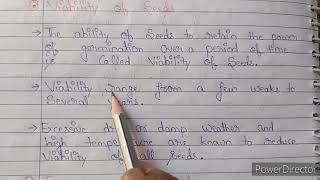 Viability of Seeds
→ The ability of Seeds to retain the power
of germination over a period of time
is Called Viability of Seeds.
→ Viability range from a few weaks to
Several
→ Excessive or damp weather and
high are known to reduce
Viability of all Seeds.
PowerDirector